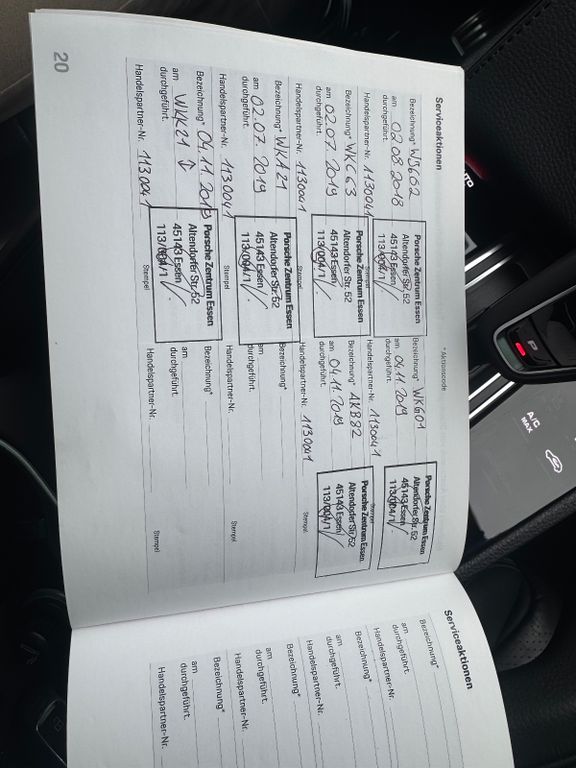 Serviceaktionen
*Aktionscode
Bezeichnung* WJ602
am 02.08.2018
durchgeführt.
Handelspartner-Nr. 1130041
Stempel
Porsche Zentrum Essen
Altendorfer Str. 52
45143 Essen
113/004/1
Bezeichnung* WKC63
am 02.07.2019
durchgeführt.
Handelspartner-Nr. 1130041
Stempel
Porsche Zentrum Essen
Altendorfer Str. 52
45143 Essen
113/004/1
Bezeichnung* WKA21
am 02.07.2019
durchgeführt.
Handelspartner-Nr. 1130041
Stempel
Porsche Zentrum Essen
Altendorfer Str. 52
45143 Essen
113/004/1
Bezeichnung* 04.11.2019
am WKK21
durchgeführt.
Handelspartner-Nr. 1130041
Stempel
Porsche Zentrum Essen
Altendorfer Str. 52
45143 Essen
113/004/1
Bezeichnung* WKG01
am 04.11.2019
durchgeführt.
Handelspartner-Nr. 1130041
Stempel
Porsche Zentrum Essen
Altendorfer Str. 52
45143 Essen
113/004/1
Bezeichnung* AKB82
am 04.11.2019
durchgeführt.
Handelspartner-Nr. 1130041
Stempel
Porsche Zentrum Essen
Altendorfer Str. 52
45143 Essen
113/004/1
Bezeichnung*
am
durchgeführt.
Handelspartner-Nr.
Stempel
Bezeichnung*
am
durchgeführt.
Handelspartner-Nr.
Stempel
20
Serviceaktionen
Bezeichnung*
am
durchgeführt.
Handelspartner-Nr.
Bezeichnung*
am
durchgeführt.
Handelspartner-Nr.
Bezeichnung*
am
durchgeführt.
Handelspartner-Nr.
Bezeichnung*
am
durchgeführt.
Handelspartner-Nr.
AUTO
P
A/C
MAX